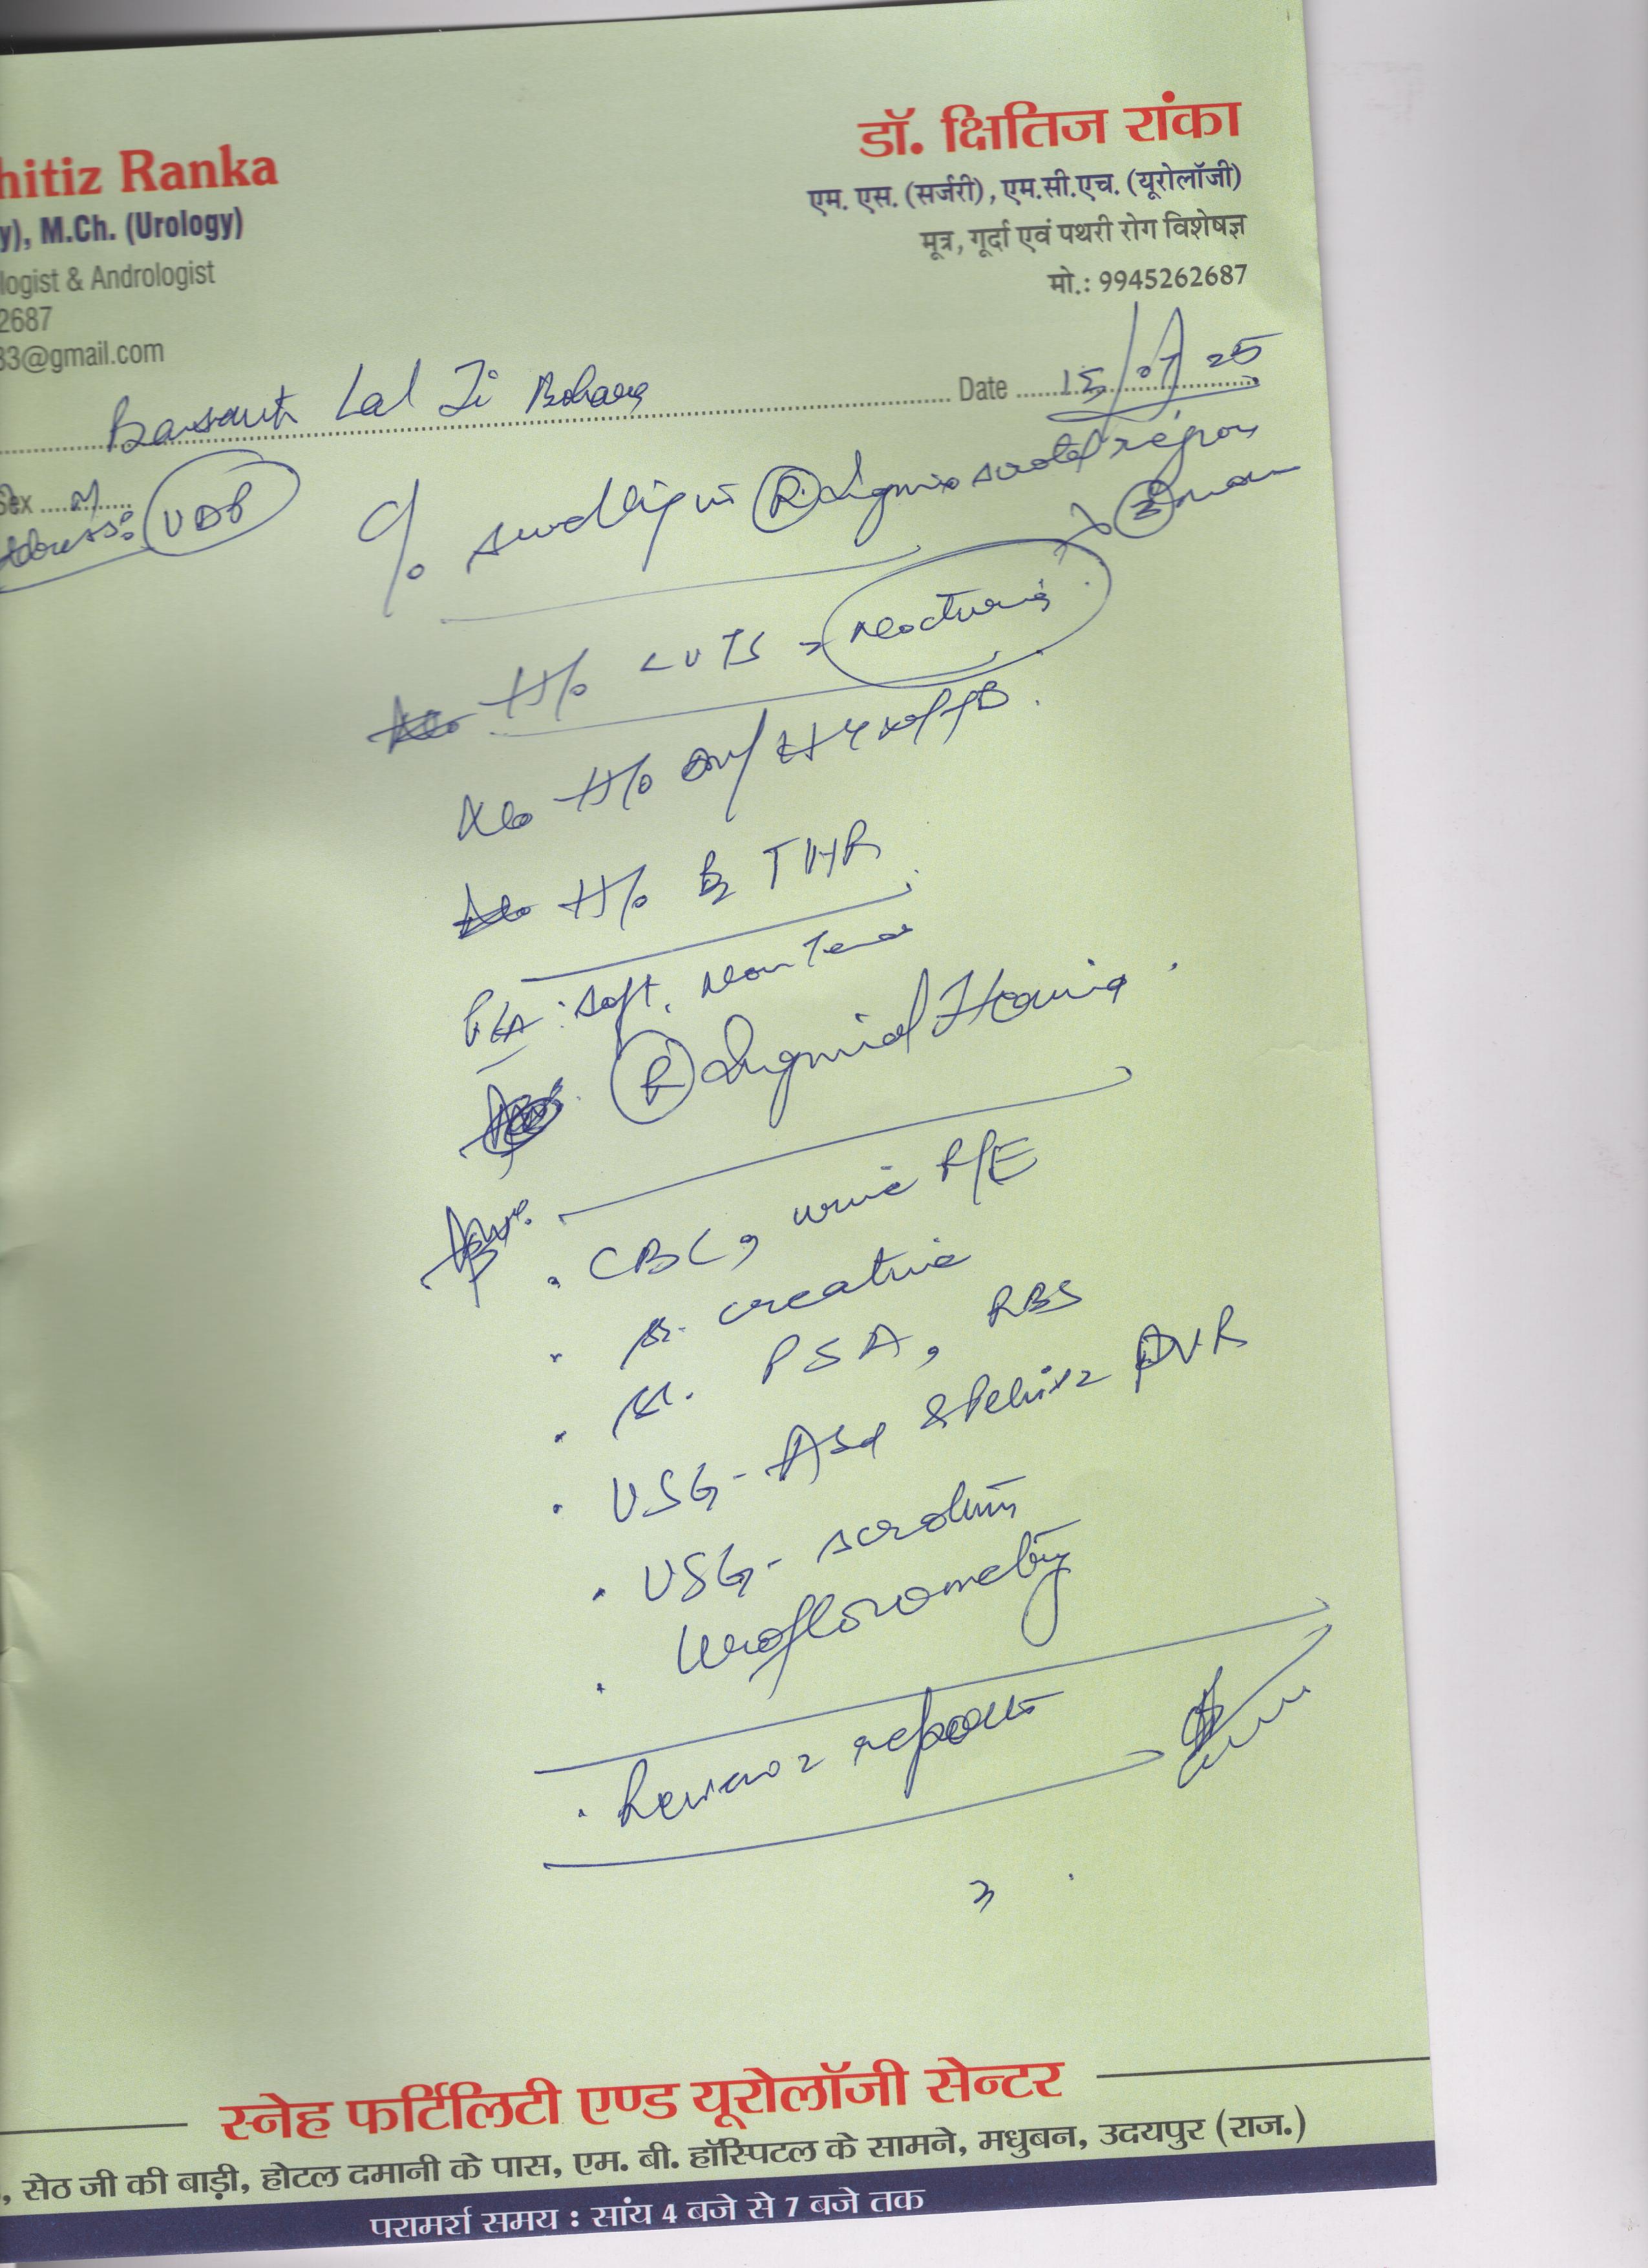 hitiz Ranka
y), M.Ch. (Urology)
logist & Andrologist
2687
83@gmail.com
डॉ. क्षितिज रांका
एम. एस. (सर्जरी), एम.सी.एच. (यूरोलॉजी)
मूत्र, गूर्दा एवं पथरी रोग विशेषज्ञ
मो.: 9945262687
Basant Lal Ji Bohara Date 15/07/25
Sex M
Address: UDP
C/o swelling in R inguino scrotal region
x 3 mon
H/o LUTS > Nocturia
No H/o
H/o B/L THR
P/A : soft, Non Tender
R Inguinal Hernia
Adv.
. CBC, urine R/E
. Sr. creatine
. Sr. PSA, RBS
. USG - Abd & Pelvis PVR
. USG - scrotum
. Uroflowometry
. Review reports
3
स्नेह फर्टिलिटी एण्ड यूरोलॉजी सेन्टर
, सेठ जी की बाड़ी, होटल दमानी के पास, एम. बी. हॉस्पिटल के सामने, मधुबन, उदयपुर (राज.)
परामर्श समय : सांय 4 बजे से 7 बजे तक